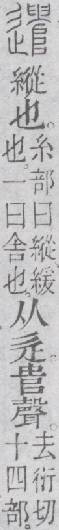 遣 縱也。糸部曰縱緩也。一曰舍也。从辵𠳋聲。去衍切十四部。